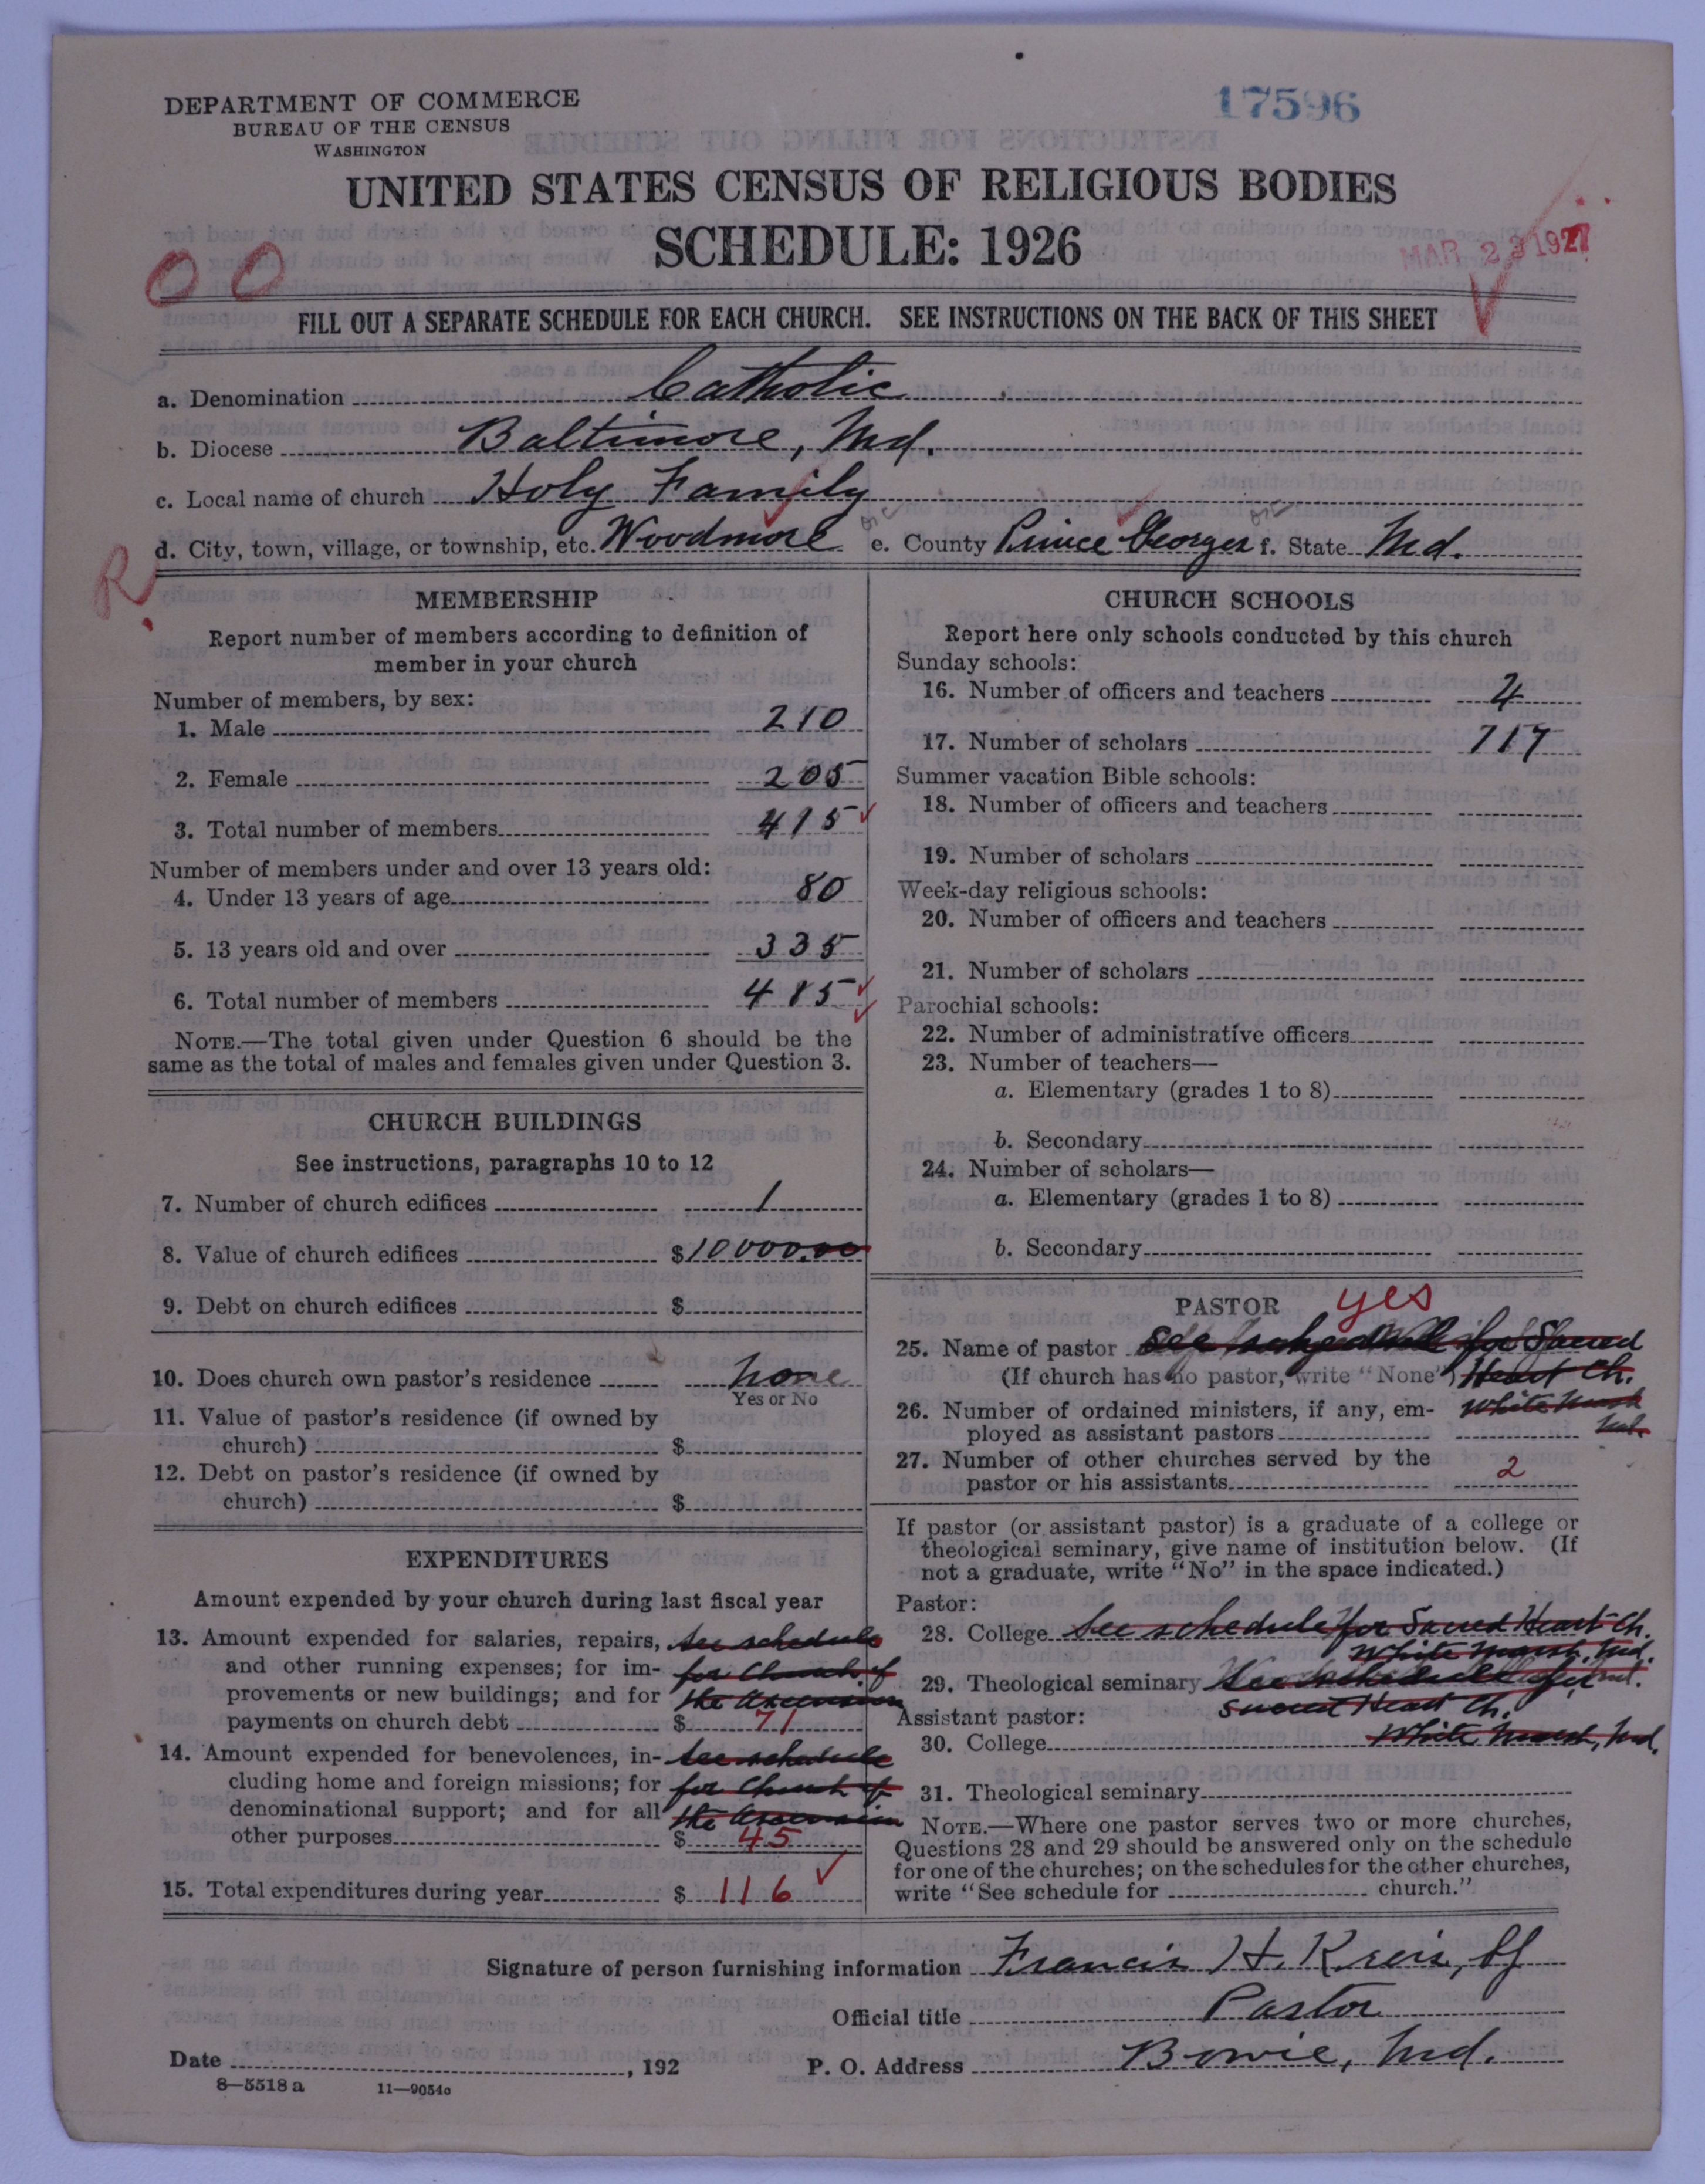 DEPARTMENT OF COMMERCE
BUREAU OF THE CENSUS
WASHINGTON
17596
UNITED STATES CENSUS OF RELIGIOUS BODIES
SCHEDULE: 1926
MAR 23 1927
OO
FILL OUT A SEPARATE SCHEDULE FOR EACH CHURCH. SEE INSTRUCTIONS ON THE BACK OF THIS SHEET
a. Denomination Catholic
b. Diocese Baltimore, Md.
c. Local name of church Holy Family
d. City, town, village, or township, etc. Woodmore e. County Prince Georges f. State Md.
R.
MEMBERSHIP
Report number of members according to definition of
member in your church
Number of members, by sex:
1. Male 210
2. Female 205
3. Total number of members 415
Number of members under and over 13 years old:
4. Under 13 years of age 80
5. 13 years old and over 335
6. Total number of members 415
NOTE.—The total given under Question 6 should be the
same as the total of males and females given under Question 3.
CHURCH BUILDINGS
See instructions, paragraphs 10 to 12
7. Number of church edifices 1
8. Value of church edifices $10000.00
9. Debt on church edifices $
10. Does church own pastor's residence none
Yes or No
11. Value of pastor's residence (if owned by
church) $
12. Debt on pastor's residence (if owned by
church) $
EXPENDITURES
Amount expended by your church during last fiscal year
13. Amount expended for salaries, repairs, see schedule
and other running expenses; for im- for Church of
provements or new buildings; and for the Ascension
payments on church debt $ 71
14. Amount expended for benevolences, in- see schedule
cluding home and foreign missions; for for Church of
denominational support; and for all the Ascension
other purposes $ 45
15. Total expenditures during year $ 116
CHURCH SCHOOLS
Report here only schools conducted by this church
Sunday schools:
16. Number of officers and teachers 4
17. Number of scholars 117
Summer vacation Bible schools:
18. Number of officers and teachers
19. Number of scholars
Week-day religious schools:
20. Number of officers and teachers
21. Number of scholars
Parochial schools:
22. Number of administrative officers
23. Number of teachers—
a. Elementary (grades 1 to 8)
b. Secondary
24. Number of scholars—
a. Elementary (grades 1 to 8)
b. Secondary
PASTOR yes
25. Name of pastor See schedule for Sacred
(If church has no pastor, write "None") Heart Ch.
26. Number of ordained ministers, if any, em- White Marsh
ployed as assistant pastors Md.
27. Number of other churches served by the
pastor or his assistants 2
If pastor (or assistant pastor) is a graduate of a college or
theological seminary, give name of institution below. (If
not a graduate, write "No" in the space indicated.)
Pastor:
28. College See schedule for Sacred Heart Ch.
White Marsh, Md.
29. Theological seminary See schedule for
Assistant pastor: Sacred Heart Ch.
30. College White Marsh, Md.
31. Theological seminary
NOTE.—Where one pastor serves two or more churches,
Questions 28 and 29 should be answered only on the schedule
for one of the churches; on the schedules for the other churches,
write "See schedule for church."
Signature of person furnishing information Francis H. Kreis, SJ
Official title Pastor
Date , 192 P. O. Address Bowie, Md.
8—5518 a 11—9054c